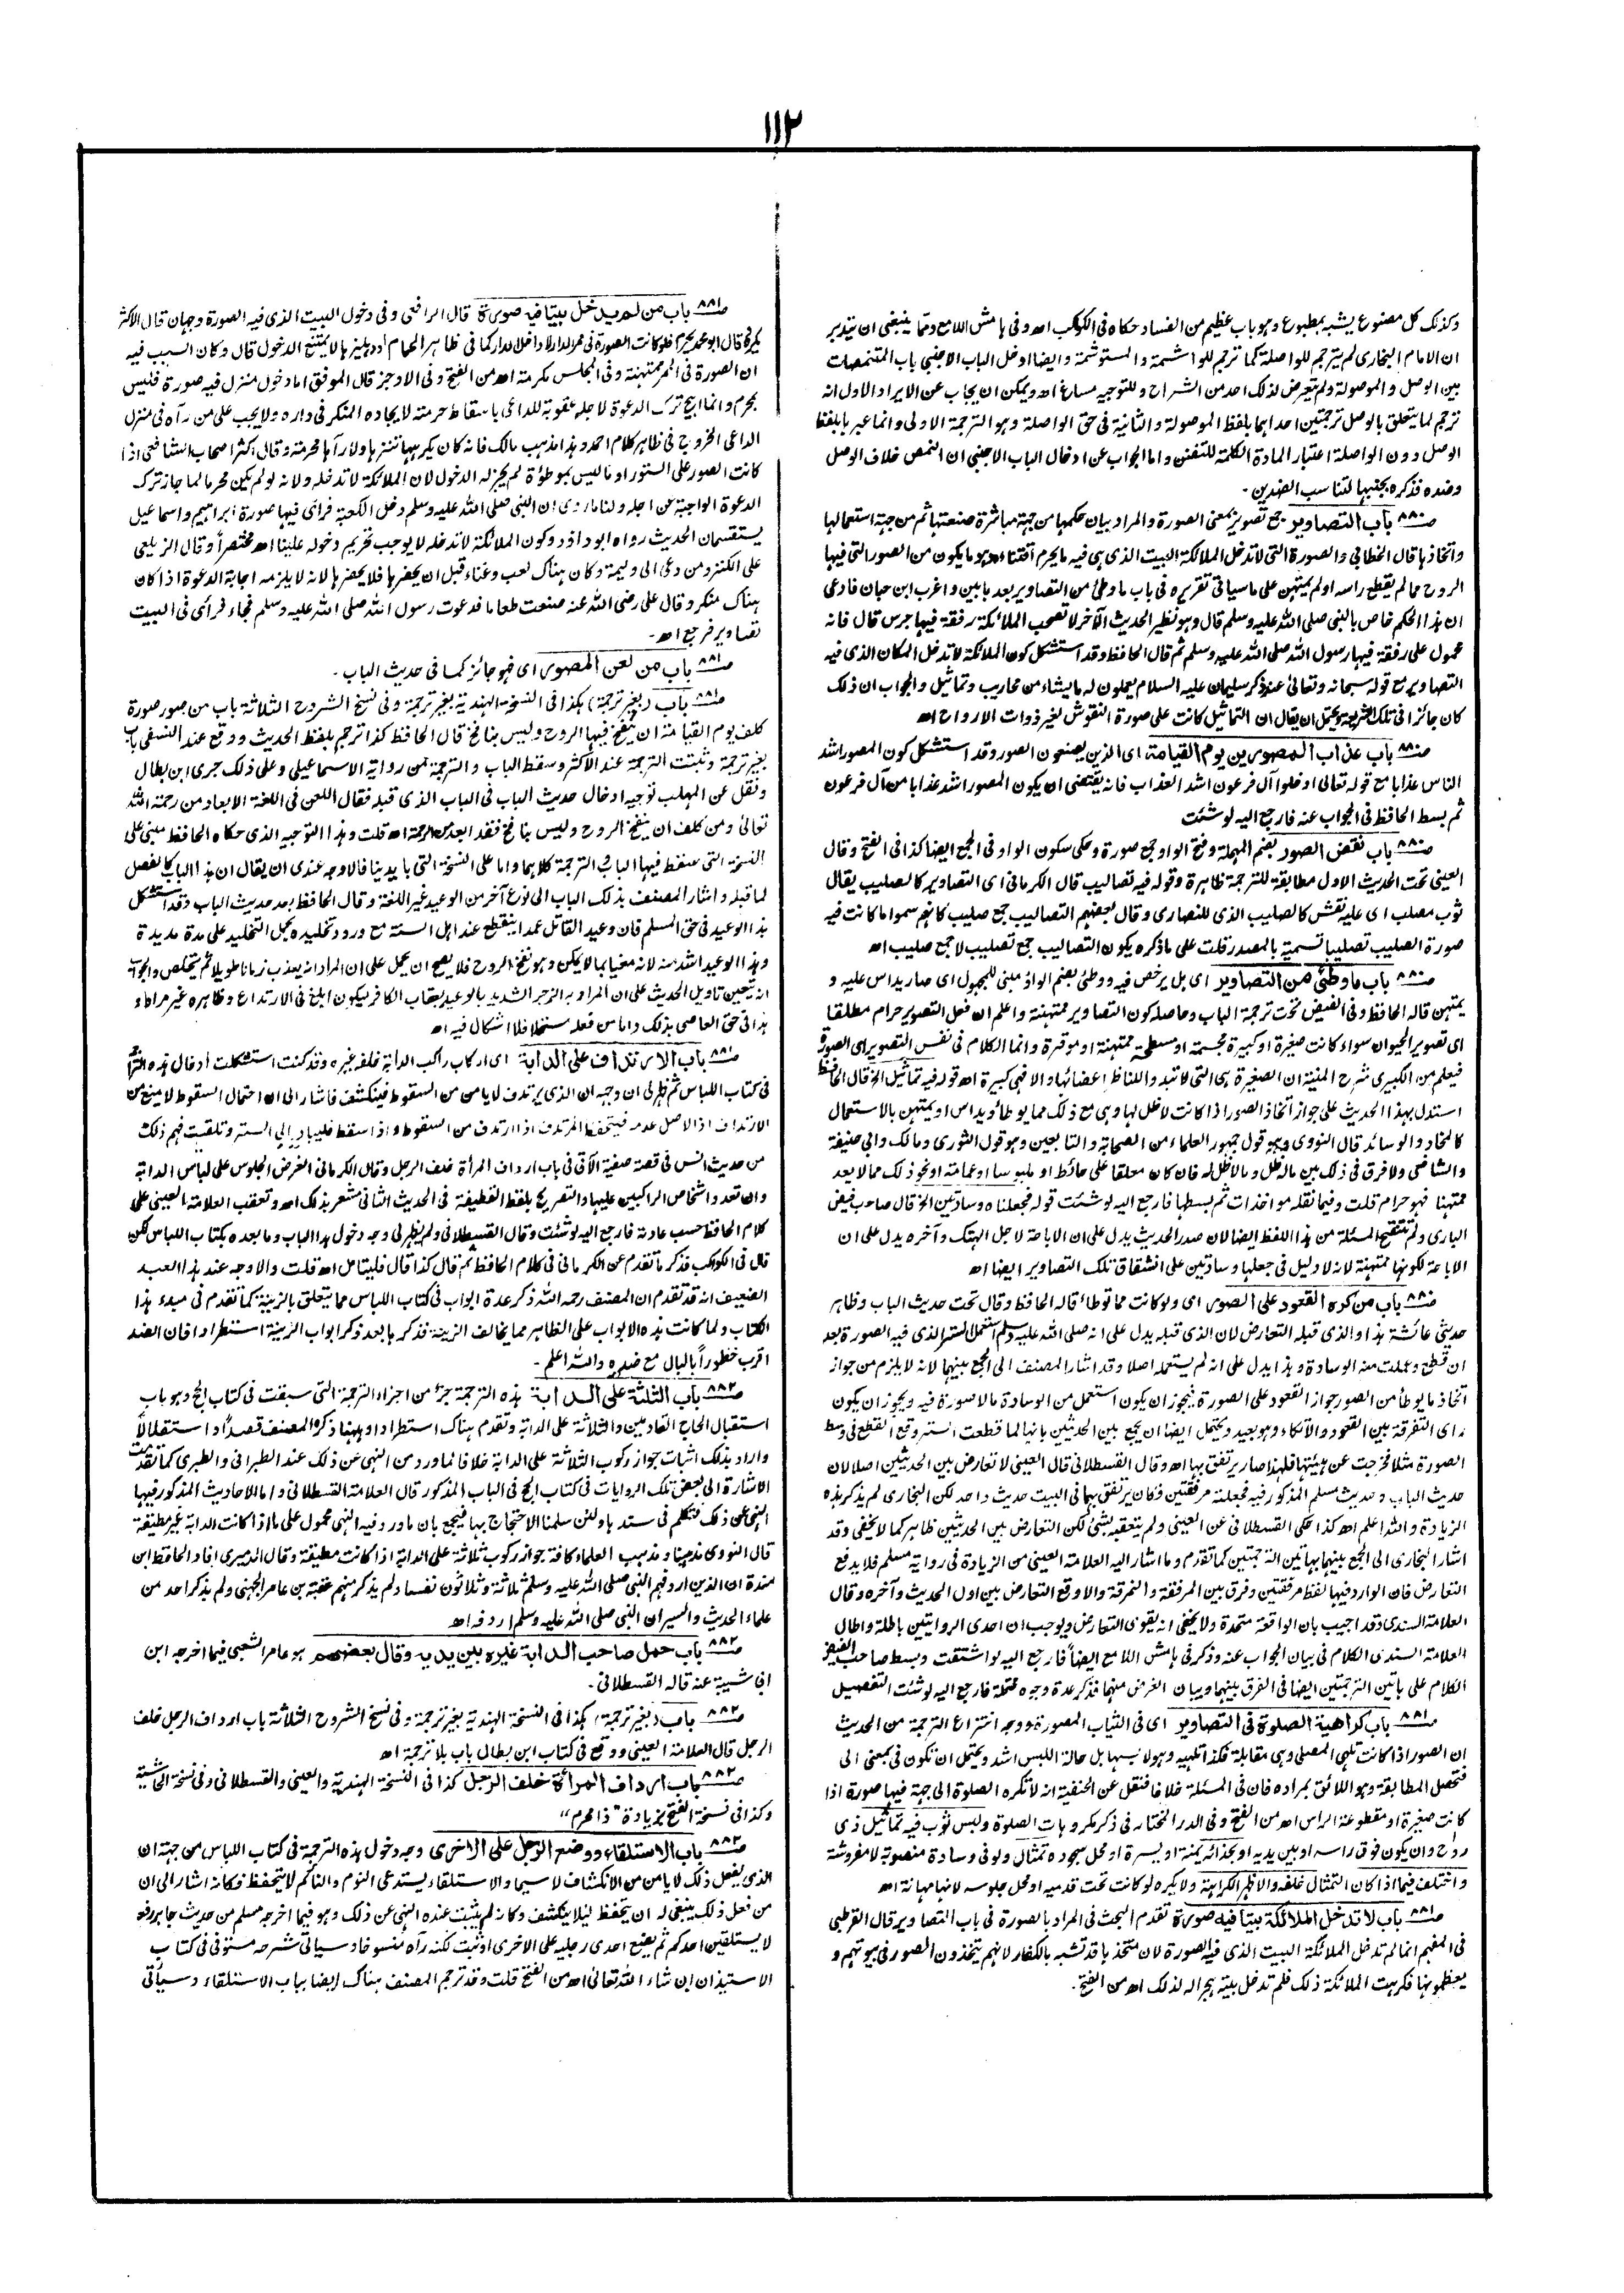 ١١٢
وكذلك كل مصنوع يشبه بمطبوع وهو باب عظيم من الفساد حكاه في الكوكب اهـ وفي هامش اللامع ومما ينبغي ان يتدبر
ان الامام البخاري لم يترجم للواصلة كما ترجم للواشمة والمستوشمة وايضا ادخل الباب الاجنبي باب المتنمصات
بين الوصل والموصولة ولم يتعرض لذلك احد من الشراح وللتوجيه مساغ اهـ ويمكن ان يجاب عن الايراد الاول انه
ترجم لما يتعلق بالوصل ترجمتين احداهما بلفظ الموصولة والثانية في حق الواصلة وهو الترجمة الاولى وانما عبرها بلفظ
الوصل دون الواصلة اعتبار المادة الكلمة للتفنن واما الجواب عن ادخال الباب الاجنبي ان النمص خلاف الوصل
وضده فذكره بجنبها لتناسب الضدين ۔
ص٨٨٠ باب التصاوير جمع تصوير بمعنى الصورة والمراد بيان حكمها من جهة مباشرة صنعتها ثم من جهة استعمالها
واتخاذها قال الخطابي والصورة التي لا تدخل الملائكة البيت الذي هي فيه ما يحرم اقتناءه وهو ما يكون من الصور التي فيها
الروح مما لم يقطع راسه او لم يمتهن على ما سياتي تقريره في باب ما وطئ من التصاوير بعد بابين واغرب ابن حبان فادعى
ان هذا الحكم خاص بالنبي صلى الله عليه وسلم قال وهو نظير الحديث الآخر لا تصحب الملائكة رفقة فيها جرس قال فانه
محمول على رفقة فيها رسول الله صلى الله عليه وسلم ثم قال الحافظ وقد استشكل كون الملائكة لا تدخل المكان الذي فيه
التصاوير مع قوله سبحانه وتعالى عند ذكر سليمان عليه السلام يعملون له ما يشاء من محاريب وتماثيل والجواب ان ذلك
كان جائزا في تلك الشريعة ويحتمل ان يقال ان التماثيل كانت على صورة النقوش لغير ذوات الارواح اهـ
ص٨٨٠ باب عذاب المصورين يوم القيامة اى الذين يصنعون الصور وقد استشكل كون المصور اشد
الناس عذابا مع قوله تعالى ادخلوا آل فرعون اشد العذاب فانه يقتضى ان يكون المصور اشد عذابا من آل فرعون
ثم بسط الحافظ في الجواب عنه فارجع اليه لو شئت
ص٨٨٠ باب نقض الصور بضم المهملة وفتح الواو جمع صورة وحكى سكون الواو في الجمع ايضا كذا في الفتح وقال
العيني تحت الحديث الاول مطابقة للترجمة ظاهرة وقوله فيه تصاليب قال الكرماني اى التصاوير كالصليب يقال
ثوب مصلب اى عليه نقش كالصليب الذي للنصارى وقال بعضهم التصاليب جمع صليب كانهم سموا ما كانت فيه
صورة الصليب تصليبا تسمية بالمصدر قلت على ما ذكره يكون التصاليب جمع تصليب لا جمع صليب اهـ
ص٨٨٠ باب ما وطئ من التصاوير اى هل يرخص فيه ووطئ بضم الواو مبنى للمجهول اى صار يداس عليه و
يمتهن قاله الحافظ وفي الفيض تحت ترجمة الباب وحاصله كون التصاوير ممتهنة واعلم ان فعل التصوير حرام مطلقا
اى تصوير الحيوان سواء كانت صغيرة او كبيرة مجسمة او مسطحة ممتهنة او موقرة وانما الكلام في نفس التصوير اى الصورة
فيعلم من الكبيرى شرح المنية ان الصغيرة هى التى لا تبدو للناظر اعضائها والا فهى كبيرة اهـ قوله فيه تماثيل الخ قال الحافظ
استدل بهذا الحديث على جواز اتخاذ الصور اذا كانت لا ظل لها وهى مع ذلك مما يوطأ ويداس او يمتهن بالاستعمال
كالمخاد والوسائد قال النووى وهو قول جمهور العلماء من الصحابة والتابعين وهو قول الثورى ومالك وابى حنيفة
والشافعى ولا فرق في ذلك بين ماله ظل ومالا ظل له فان كان معلقا على حائط او ملبوسا او عمامة او نحو ذلك مما لا يعد
ممتهنا فهو حرام قلت وفيما نقله مواخذات ثم بسطها فارجع اليه لو شئت قوله فجعلناه وسادتين الخ قال صاحب فيض
البارى ولم تتنقح المسئلة من هذا اللفظ ايضا لان صدر الحديث يدل على ان الاباحة لاجل الهتك وآخره يدل على ان
الاباحة لكونها ممتهنة لانه لا دليل في جعلها وسادتين على انشقاق تلك التصاوير ايضا اهـ
ص٨٨٠ باب من كره القعود على الصور اى ولو كانت مما توطأ قاله الحافظ وقال تحت حديث الباب وظاهر
حديثى عائشة هذا والذى قبله التعارض لان الذى قبله يدل على انه صلى الله عليه وسلم استعمل الستر الذى فيه الصورة بعد
ان قطع وعملت منه الوسادة وهذا يدل على انه لم يستعمله اصلا وقد اشار المصنف الى الجمع بينهما لانه لا يلزم من جواز
اتخاذ ما يوطأ من الصور جواز القعود على الصورة فيجوز ان يكون استعمل من الوسادة ما لا صورة فيه ويجوز ان يكون
راى التفرقة بين القعود والاتكاء وهو بعيد ويحتمل ايضا ان يجمع بين الحديثين بانها لما قطعت الستر وقع القطع فى وسط
الصورة مثلا فخرجت عن هيئتها فلهذا صار يرتفق بها اهـ وقال القسطلانى قال العينى لا تعارض بين الحديثين اصلا لان
حديث الباب وحديث مسلم المذكور فيه فجعلته مرفقتين فكان يرتفق بهما فى البيت حديث واحد لكن البخارى لم يذكر هذه
الزيادة والله اعلم اهـ كذا حكى القسطلانى عن العينى ولم يتعقبه بشئ لكن التعارض بين الحديثين ظاهر كما لا يخفى وقد
اشار البخارى الى الجمع بينهما بهاتين الترجمتين كما تقدم وما اشار اليه العلامة العينى من الزيادة فى رواية مسلم فلا يدفع
التعارض فان الوارد فيها لفظ مرفقتين وفرق بين المرفقة والنمرقة والاوقع التعارض بين اول الحديث وآخره وقال
العلامة السندى وقد اجيب بان الواقعة متحدة ولا يخفى انه يقوى التعارض ويوجب ان احدى الروايتين باطلة واطال
العلامة السندى الكلام فى بيان الجواب عنه وذكر فى هامش اللامع ايضاً فارجع اليه لو اشتقت وبسط صاحب الفيض
الكلام على هاتين الترجمتين ايضا فى الفرق بينهما وبيان الغرض منهما فذكر عدة وجوه محتملة فارجع اليه لو شئت التفصيل
ص٨٨١ باب كراهية الصلوة فى التصاوير اى فى الثياب المصورة ووجه انتزاع الترجمة من الحديث
ان الصور اذا كانت تلهى المصلى وهى مقابلة فكذا تلهيه وهو لابسها بل حالة اللبس اشد ويحتمل ان تكون فى بمعنى الى
فتحصل المطابقة وهو اللائق بمراده فان فى المسئلة خلافا فنقل عن الحنفية انه لا تكره الصلوة الى جهة فيها صورة اذا
كانت صغيرة او مقطوعة الراس اهـ من الفتح وفى الدر المختار فى ذكر مكروهات الصلوة ولبس ثوب فيه تماثيل ذى
روح وان يكون فوق راسه او بين يديه او بحذائه يمنة او يسرة او محل سجوده تمثال ولو فى وسادة منصوبة لا مفروشة
واختلف فيما اذا كان التمثال خلفه والاظهر الكراهة ولا يكره لو كانت تحت قدميه او محل جلوسه لانها مهانة اهـ
ص٨٨١ باب لا تدخل الملائكة بيتا فيه صورة تقدم البحث فى المراد بالصورة فى باب التصاوير قال القرطبى
فى المفهم انما لم تدخل الملائكة البيت الذى فيه الصورة لان متخذها قد تشبه بالكفار لانهم يتخذون الصور فى بيوتهم و
يعظمونها فكرهت الملائكة ذلك فلم تدخل بيته هجرا له لذلك اهـ من الفتح ۔
ص٨٨١ باب من لم يدخل بيتا فيه صورة قال الرافعى وفى دخول البيت الذى فيه الصورة وجهان قال الاكثر
يكره وقال ابو محمد يحرم فلو كانت الصورة فى ممر الدار لا داخل الدار كما فى ظاهر الحمام او دهليزها لا يمتنع الدخول قال وكان السبب فيه
ان الصورة فى الممر ممتهنة وفى المجلس مكرمة اهـ من الفتح وفى الاوجز قال الموفق اما دخول منزل فيه صورة فليس
بمحرم وانما ابيح ترك الدعوة لاجله عقوبة للداعى باسقاط حرمته لايجاده المنكر فى داره ولا يجب على من رآه فى منزل
الداعى الخروج فى ظاهر كلام احمد وهذا مذهب مالك فانه كان يكرهها تنزها ولا رآها محرمة وقال اكثر اصحاب الشافعى اذا
كانت الصور على الستور او ما ليس بموطؤة لم يجز له الدخول لان الملائكة لا تدخله ولانه لو لم يكن محرما لما جاز ترك
الدعوة الواجبة من اجله ولنا ما روى ان النبى صلى الله عليه وسلم دخل الكعبة فرأى فيها صورة ابراهيم واسماعيل
يستقسمان الحديث رواه ابو داؤد وكون الملائكة لا تدخله لا يوجب تحريم دخوله علينا اهـ مختصراً وقال الزيلعى
على الكنز ومن دعى الى وليمة وكان هناك لعب وغناء قبل ان يحضرها فلا يحضرها لانه لا يلزمه اجابة الدعوة اذا كان
هناك منكر وقال على رضى الله عنه صنعت طعاما فدعوت رسول الله صلى الله عليه وسلم فجاء فرأى فى البيت
تصاوير فرجع اهـ ۔
ص٨٨١ باب من لعن المصور اى فهو جائز كما فى حديث الباب ۔
ص٨٨١ باب (بغير ترجمة) هكذا فى النسخة الهندية بغير ترجمة وفى نسخ الشروح الثلاثة باب من صور صورة
كلف يوم القيامة ان ينفخ فيها الروح وليس بنافخ قال الحافظ كذا ترجم بلفظ الحديث ووقع عند النسفى باب
بغير ترجمة وثبتت الترجمة عند الاكثر وسقط الباب والترجمة من رواية الاسماعيلى وعلى ذلك جرى ابن بطال
ونقل عن المهلب توجيه ادخال حديث الباب فى الباب الذى قبله فقال اللعن فى اللغة الابعاد من رحمة الله
تعالى ومن كلف ان ينفخ الروح وليس بنافخ فقد ابعد من الرحمة اهـ قلت وهذا التوجيه الذى حكاه الحافظ مبنى على
النسخة التى سقط فيها الباب والترجمة كلاهما واما على النسخة التى بايدينا فالاوجه عندى ان يقال ان هذا الباب كالفصل
لما قبله واشار المصنف بذلك الباب الى نوع آخر من الوعيد غير اللعنة وقال الحافظ بعد حديث الباب وقد استشكل
هذا الوعيد فى حق المسلم فان وعيد القاتل عمدا ينقطع عند اهل السنة مع ورود تخليده بحمل التخليد على مدة مديدة
وهذا الوعيد اشد منه لانه مغيا بما لا يمكن وهو نفخ الروح فلا يصح ان يحمل على ان المراد انه يعذب زمانا طويلا ثم يتخلص والجواب
انه يتعين تاويل الحديث على ان المراد به الزجر الشديد بالوعيد بعقاب الكافر ليكون ابلغ فى الارتداع وظاهره غير مراد و
هذا فى حق العاصى بذلك واما من فعله مستحلا فلا اشكال فيه اهـ
ص٨٨١ باب الارتداف على الدابة اى اركاب راكب الدابة خلفه غيره وقد كنت استشكلت ادخال هذه التراجم
فى كتاب اللباس ثم ظهر لى ان وجهه ان الذى يرتدف لا يامن من السقوط فينكشف فاشار الى ان احتمال السقوط لا يمنع من
الارتداف اذ الاصل عدمه فيتحفظ المرتدف اذا ارتدف من السقوط واذا سقط فليبادر الى الستر وتلقيت فهم ذلك
من حديث انس فى قصة صفية الآتى فى باب ارداف المرأة خلف الرجل وقال الكرمانى الغرض الجلوس على لباس الدابة
وان تعدد اشخاص الراكبين عليها والتصريح بلفظ القطيفة فى الحديث الثانى مشعر بذلك اهـ وتعقب العلامة العينى على
كلام الحافظ حسب عادته فارجع اليه لو شئت وقال القسطلانى ولم يظهر لى وجه دخول هذا الباب وما بعده بكتاب اللباس لكن
قال فى الكواكب فذكر ما تقدم عن الكرمانى فى كلام الحافظ ثم قال كذا قال فليتامل اهـ قلت والاوجه عند هذا العبد
الضعيف انه قد تقدم ان المصنف رحمه الله ذكر عدة ابواب فى كتاب اللباس مما يتعلق بالزينة كما تقدم فى مبدء هذا
الكتاب ولما كانت هذه الابواب على الظاهر مما يخالف الزينة فذكرها بعد ذكر ابواب الزينة استطرادا فان الضد
اقرب خطوراً بالبال مع ضده والله اعلم ۔
ص٨٨٢ باب الثلثة على الدابة هذه الترجمة جزء من اجزاء الترجمة التى سبقت فى كتاب الحج وهو باب
استقبال الحاج القادمين والثلاثة على الدابة وتقدم هناك استطرادا وههنا ذكره المصنف قصداً واستقلالاً
واراد بذلك اثبات جواز ركوب الثلاثة على الدابة خلافا لما ورد من النهى عن ذلك عند الطبرانى والطبرى كما تقدمت
الاشارة الى بعض تلك الروايات فى كتاب الحج فى الباب المذكور قال العلامة القسطلانى واما الاحاديث المذكور فيها
النهى عن ذلك فتكلم فى سندها ولئن سلمنا الاحتجاج بها فيجمع بان ما ورد فيه النهى محمول على ما اذا كانت الدابة غير مطيقة
قال النووى مذهبنا ومذهب العلماء كافة جواز ركوب ثلاثة على الدابة اذا كانت مطيقة وقال الدميرى افاد الحافظ ابن
مندة ان الذين اردفهم النبى صلى الله عليه وسلم ثلاثة وثلاثون نفسا ولم يذكر منهم عقبة بن عامر الجهنى ولم يذكر احد من
علماء الحديث والسير ان النبى صلى الله عليه وسلم اردفه اهـ
ص٨٨٢ باب حمل صاحب الدابة غيره بين يديه وقال بعضهم هو عامر الشعبى فيما اخرجه ابن
ابى شيبة عنه قاله القسطلانى ۔
ص٨٨٢ باب (بغير ترجمة) هكذا فى النسخة الهندية بغير ترجمة وفى نسخ الشروح الثلاثة باب ارداف الرجل خلف
الرجل قال العلامة العينى ووقع فى كتاب ابن بطال باب بلا ترجمة اهـ
ص٨٨٢ باب ارداف المرأة خلف الرجل كذا فى النسخة الهندية والعينى والقسطلانى وفى نسخة الحاشية
وكذا فى نسخة الفتح بزيادة "ذا محرم"
ص٨٨٢ باب الاستلقاء ووضع الرجل على الاخرى وجه دخول هذه الترجمة فى كتاب اللباس من جهة ان
الذى يفعل ذلك لا يامن من الانكشاف لا سيما والاستلقاء يستدعى النوم والنائم لا يتحفظ فكانه اشار الى ان
من فعل ذلك ينبغى له ان يتحفظ لئلا ينكشف وكانه لم يثبت عنده النهى عن ذلك وهو فيما اخرجه مسلم من حديث جابر رفعه
لا يستلقين احدكم ثم يضع احدى رجليه على الاخرى او ثبت لكنه رآه منسوخا وسياتى شرحه مستوفى فى كتاب
الاستيذان ان شاء الله تعالى اهـ من الفتح قلت وقد ترجم المصنف هناك ايضا بباب الاستلقاء وسيأتى